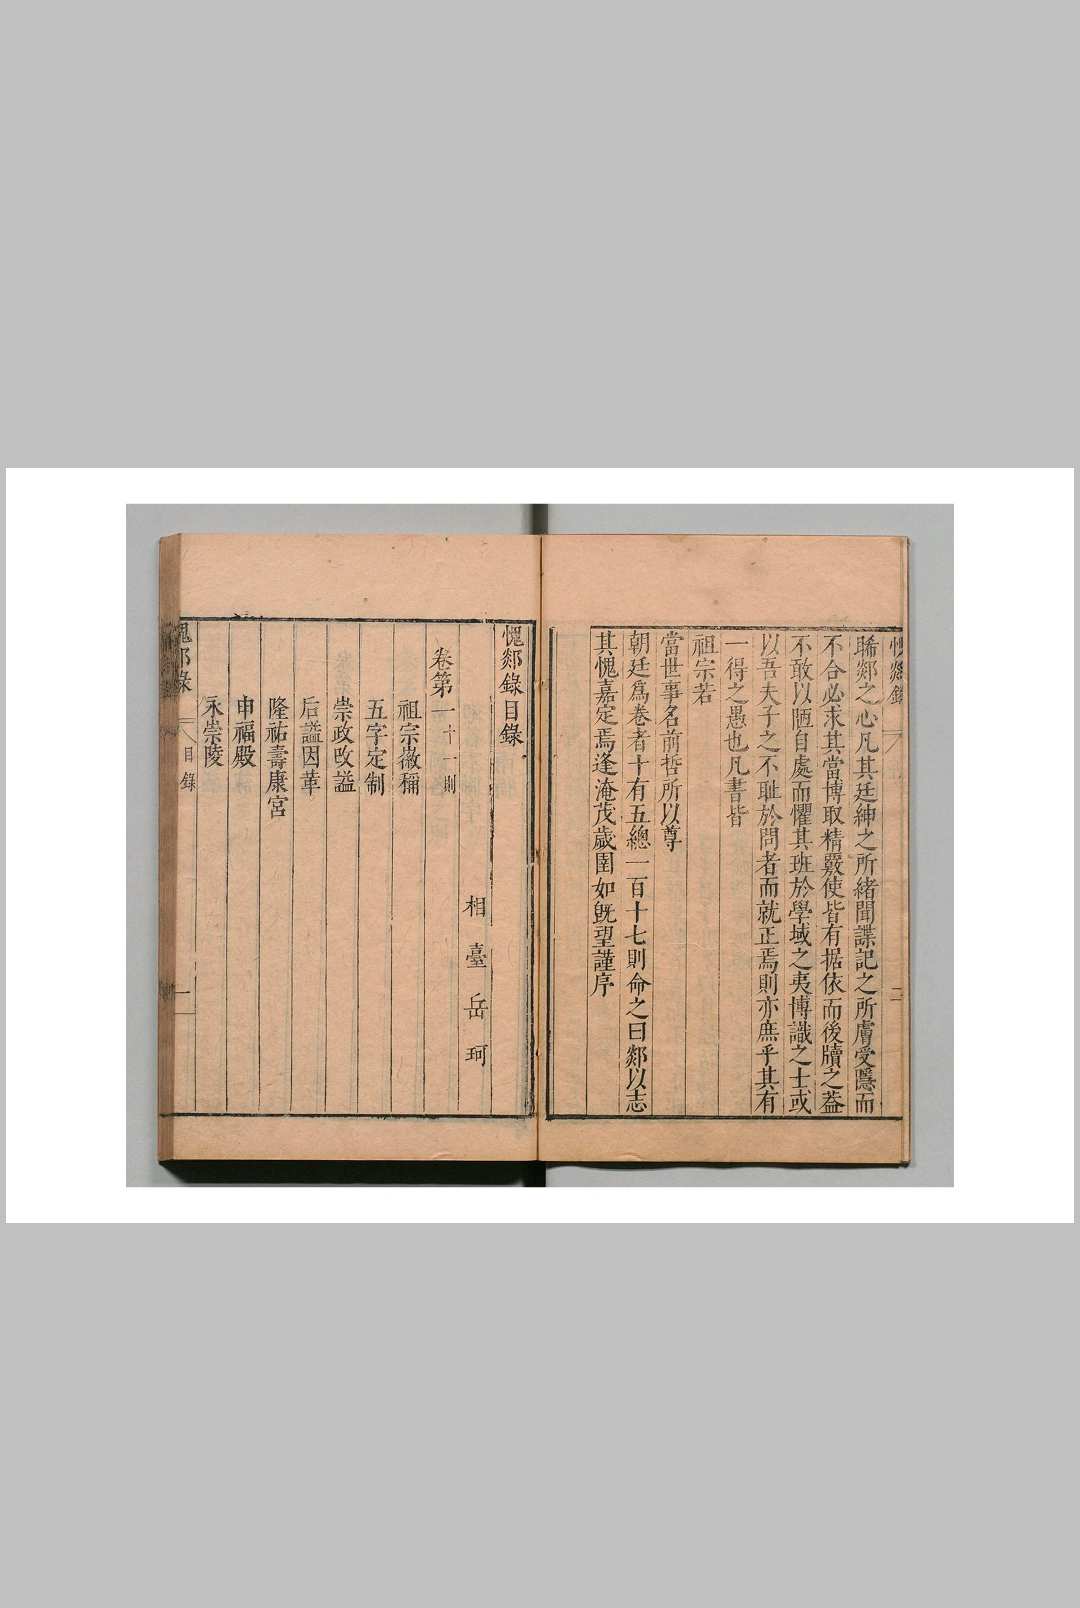 睎郯之心凡其廷紳之所緒聞諜記之所膚受隱而
不合必求其當博取精覈使皆有据依而後牘之蓋
不敢以陋自處而懼其班於學域之夷博識之士或
以吾夫子之不耻於問者而就正焉則亦庶乎其有
一得之愚也凡書皆
祖宗若
當世事名前哲所以尊
朝廷爲卷者十有五總一百十七則命之曰郯以志
其愧嘉定焉逢淹茂歲圉如旣望謹序
二
愧郯錄目錄
相臺岳珂
卷第一十一則
祖宗徽稱
五字定制
崇政改諡
后諡因革
隆祐壽康宮
申福殿
永崇陵
目錄
一